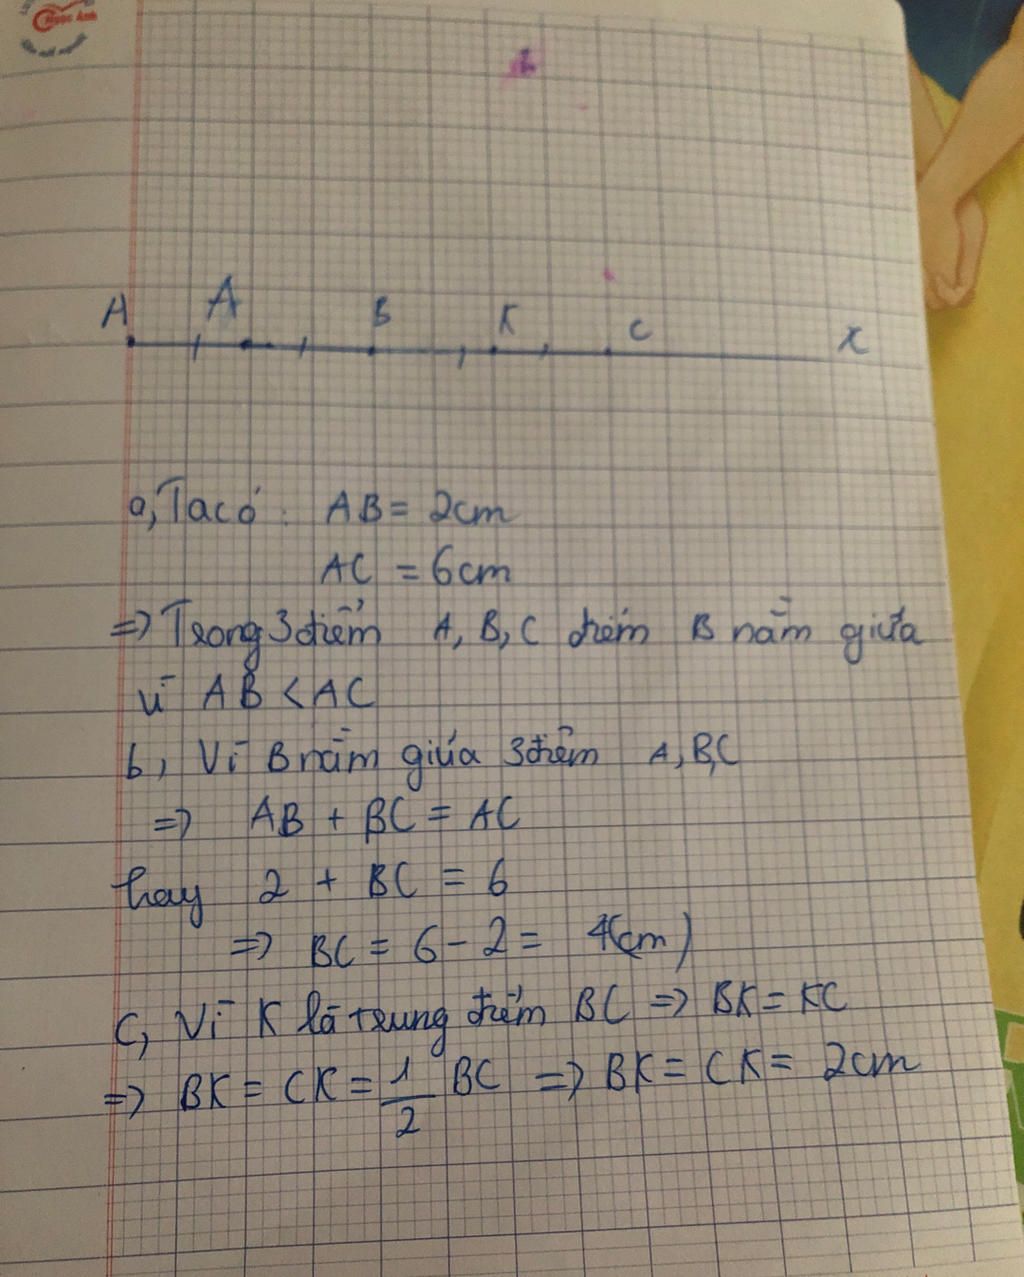 Ngọc Ánh
A A B K C x
a, Ta có: AB = 2cm
AC = 6cm
=> Trong 3 điểm A, B, C điểm B nằm giữa
vì AB < AC
b, Vì B nằm giữa 3 điểm A, B, C
=> AB + BC = AC
hay 2 + BC = 6
=> BC = 6 - 2 = 4(cm)
c, Vì K là trung điểm BC => BK = KC
=> BK = CK = 1/2 BC => BK = CK = 2cm